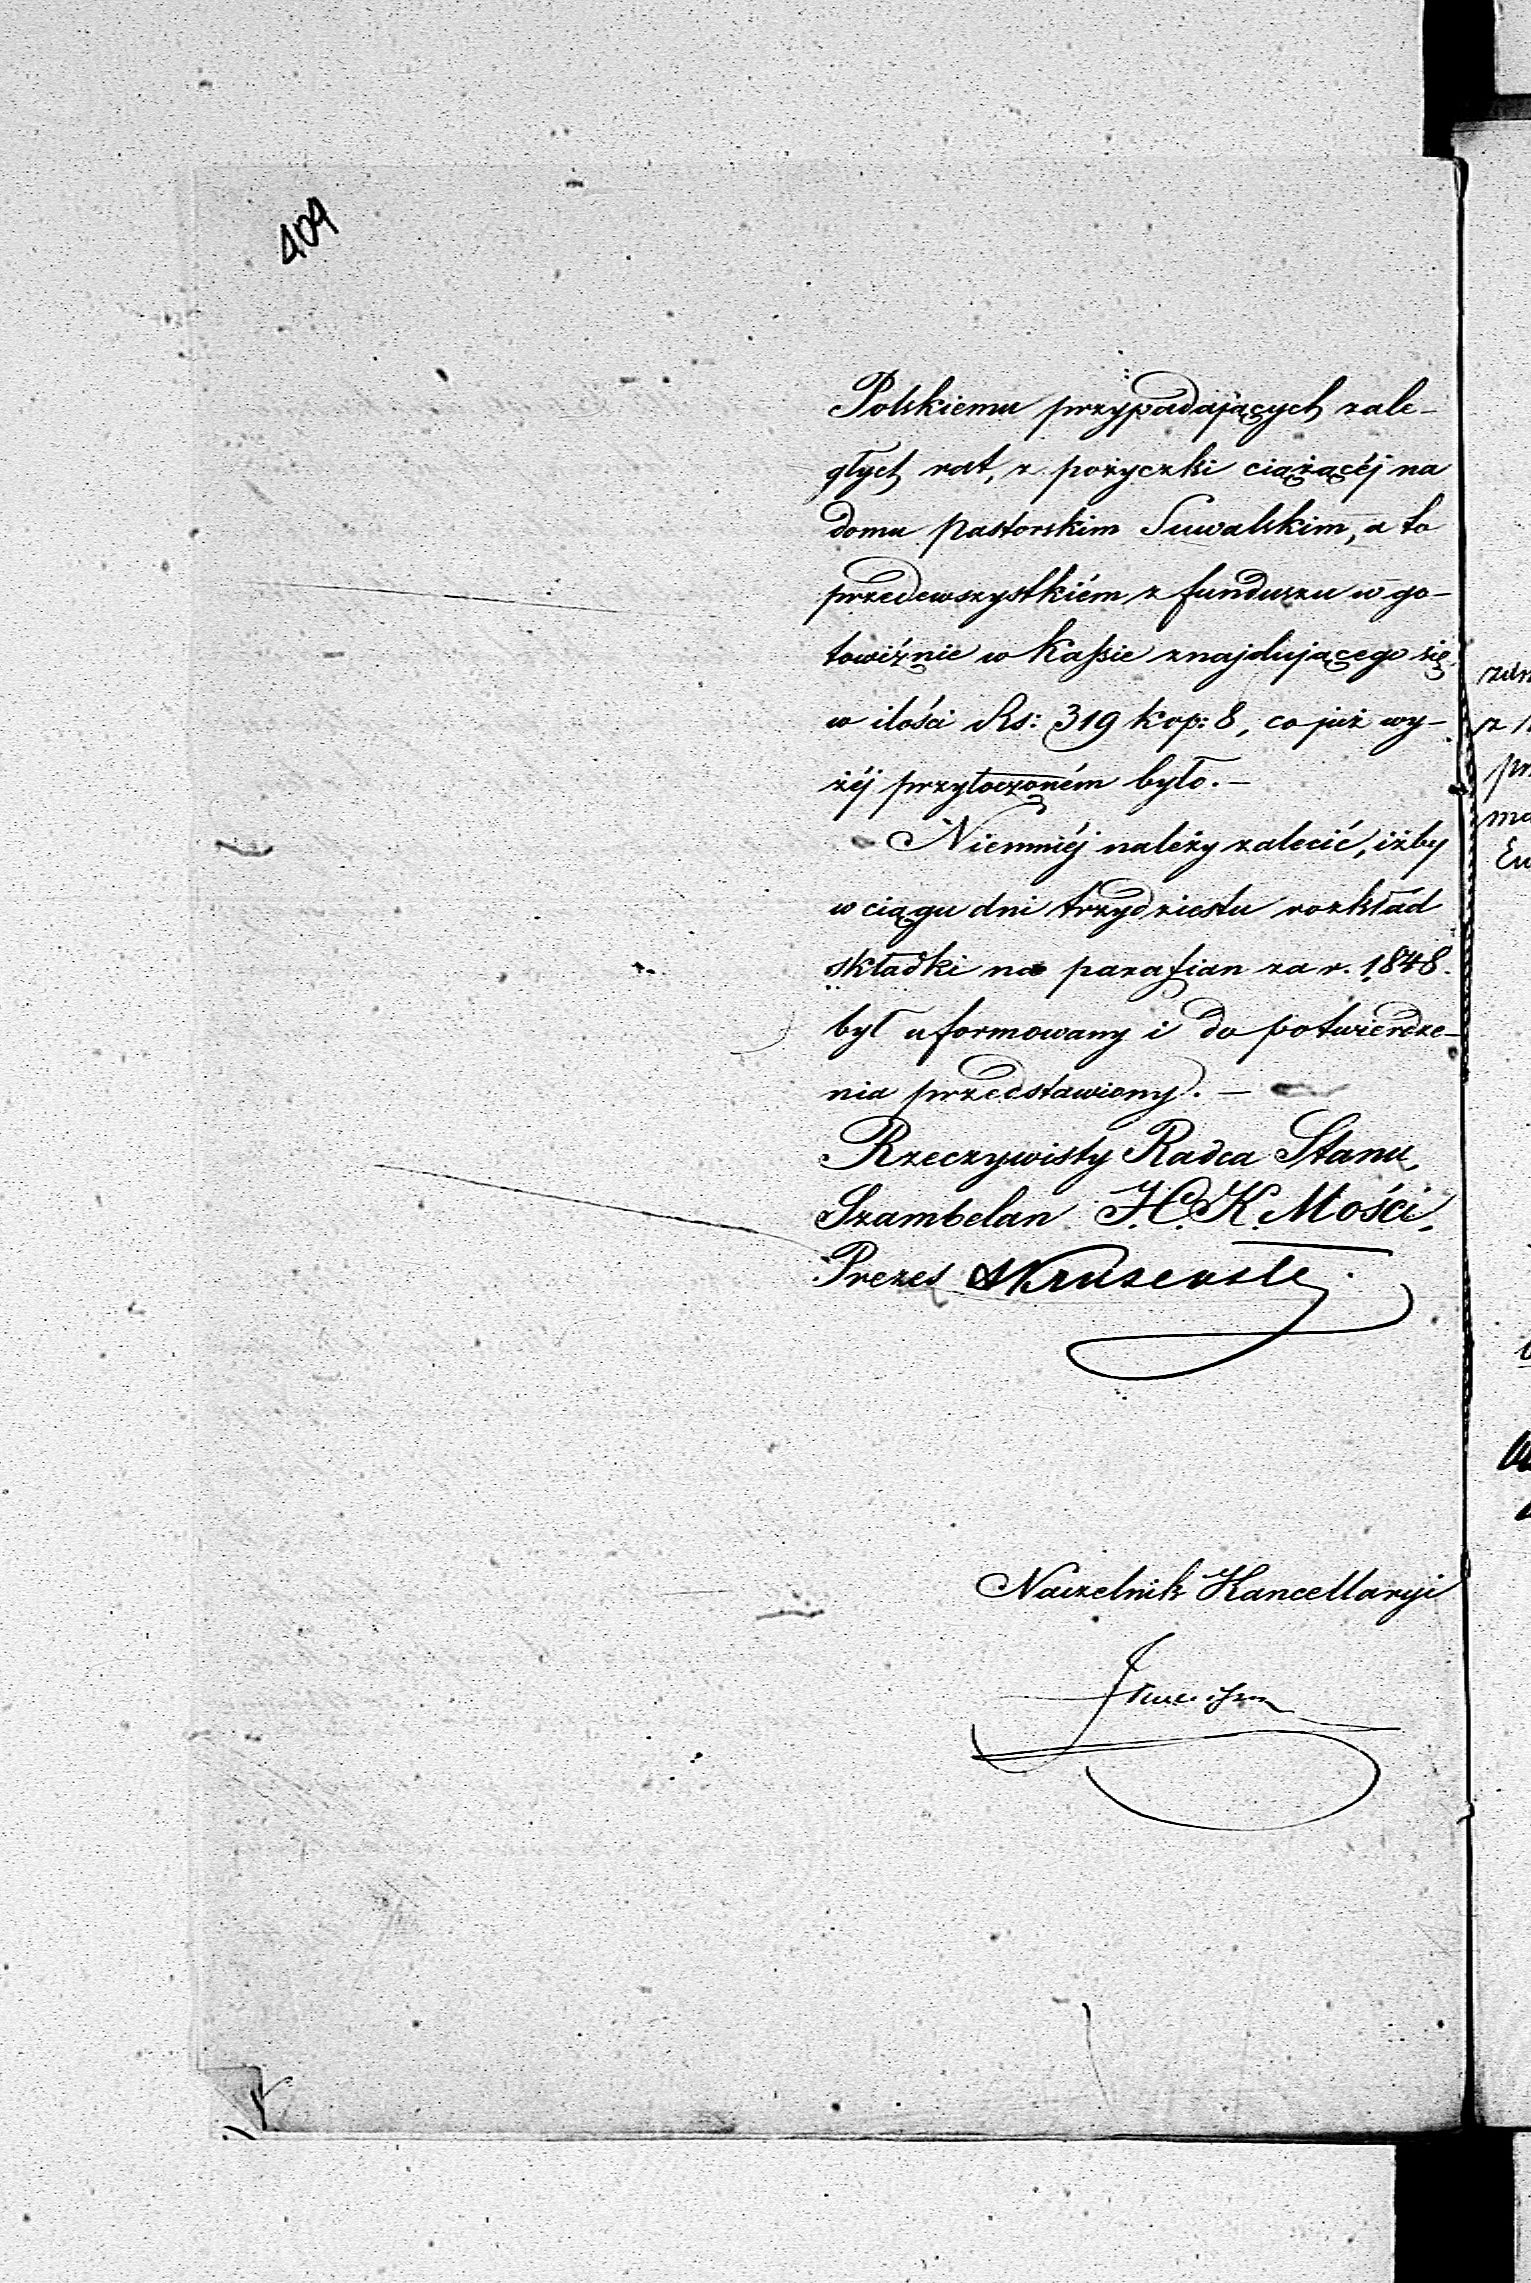 409
Polskiemu przypadających zale-
głych rat, z pożyczki ciążącéj na
domu pastorskim Suwalskim, a to
przedewszystkiém z funduszu w go-
towiźnie w Kaſsie znajdującego się
w ilości Rs: 319 kop: 8, co już wy-
żéj przytoczoném było. —
Niemniéj należy zalecić, iżby
w ciągu dni trzydziestu rozkład
składki na parafian za r. 1848.
był uformowany i do potwierdze-
nia przedstawiony. —
Rzeczywisty Radca Stanu,
Szambelan J. C. K. Mości,
Prezes
Naczelnik Kancellaryi